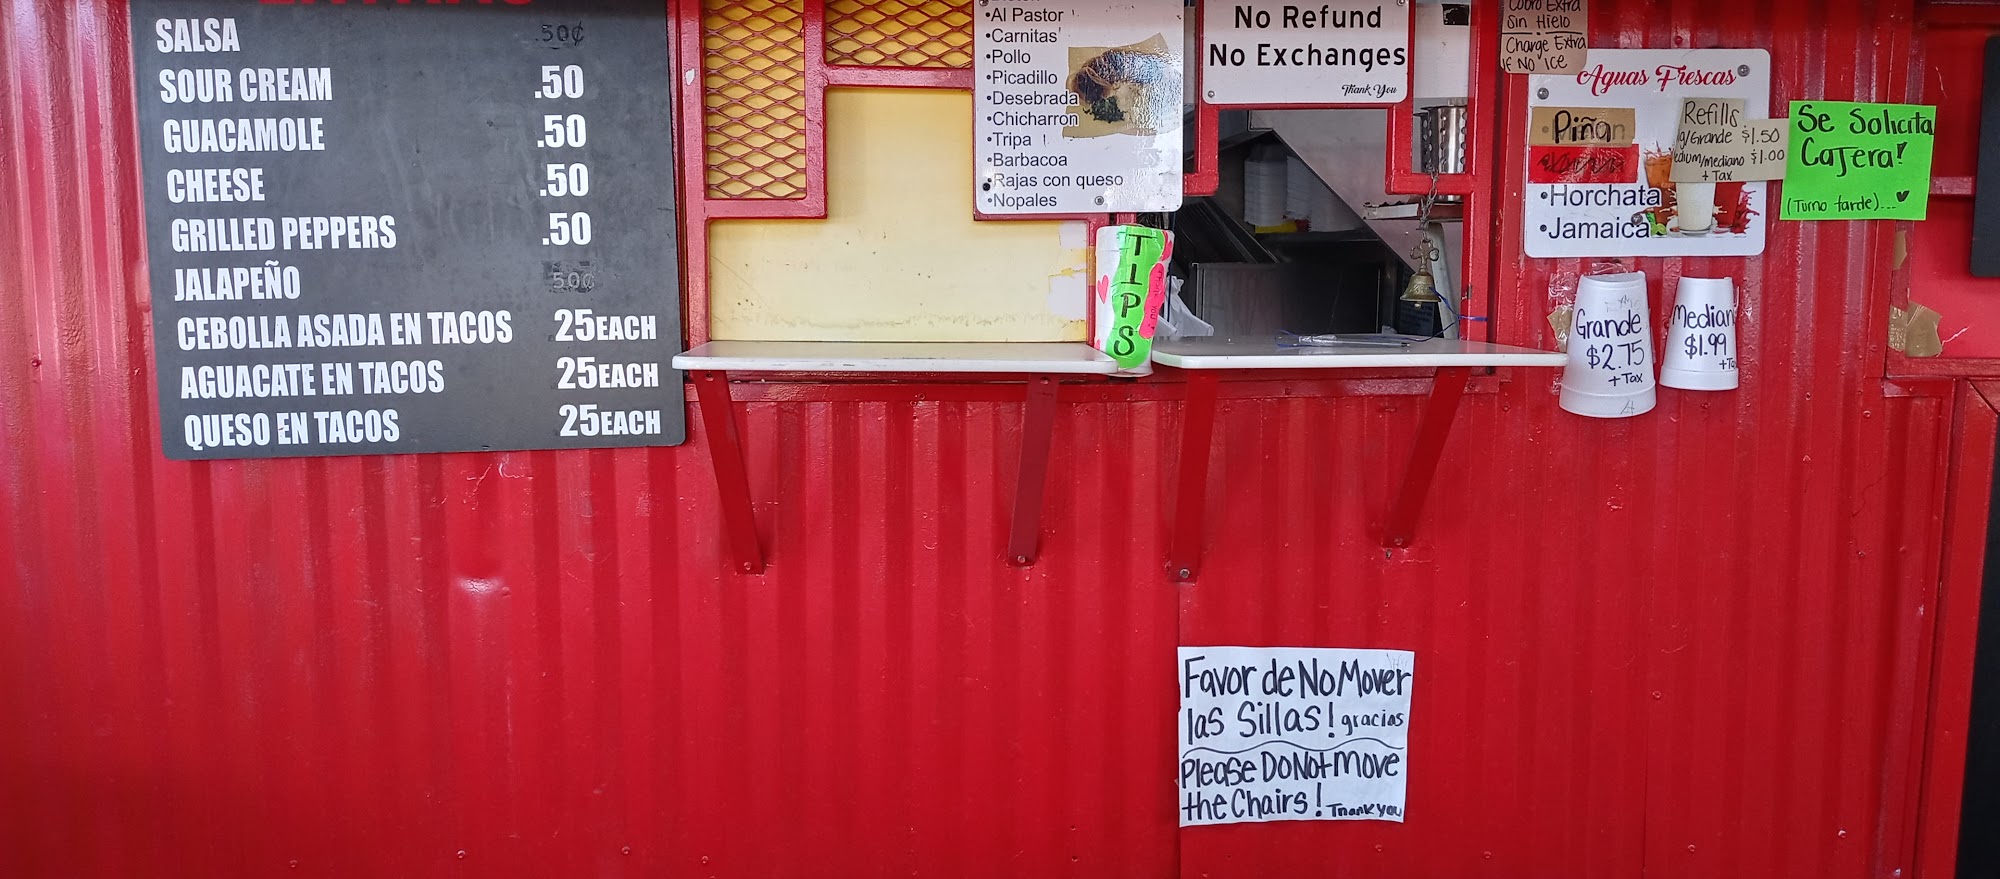 SALSA .50¢
SOUR CREAM .50
GUACAMOLE .50
CHEESE .50
GRILLED PEPPERS .50
JALAPEÑO 50¢
CEBOLLA ASADA EN TACOS 25EACH
AGUACATE EN TACOS 25EACH
QUESO EN TACOS 25EACH
•Al Pastor
•Carnitas
•Pollo
•Picadillo
•Desebrada
•Chicharron
•Tripa
•Barbacoa
•Rajas con queso
•Nopales
TIPS
No Refund
No Exchanges
Thank You
Cobro Extra
Sin Hielo
Charge Extra
if No ice
Aguas Frescas
Piña
•Horchata
•Jamaica
Refills
g/Grande $1.50
edium/mediano $1.00
+ Tax
Se Solicita
Cajera!
(Turno tarde)...
Grande
$2.75
+ Tax
Median
$1.99
+Ta
Favor de No Mover
las Sillas! gracias
Please Do Not move
the Chairs! Thank you